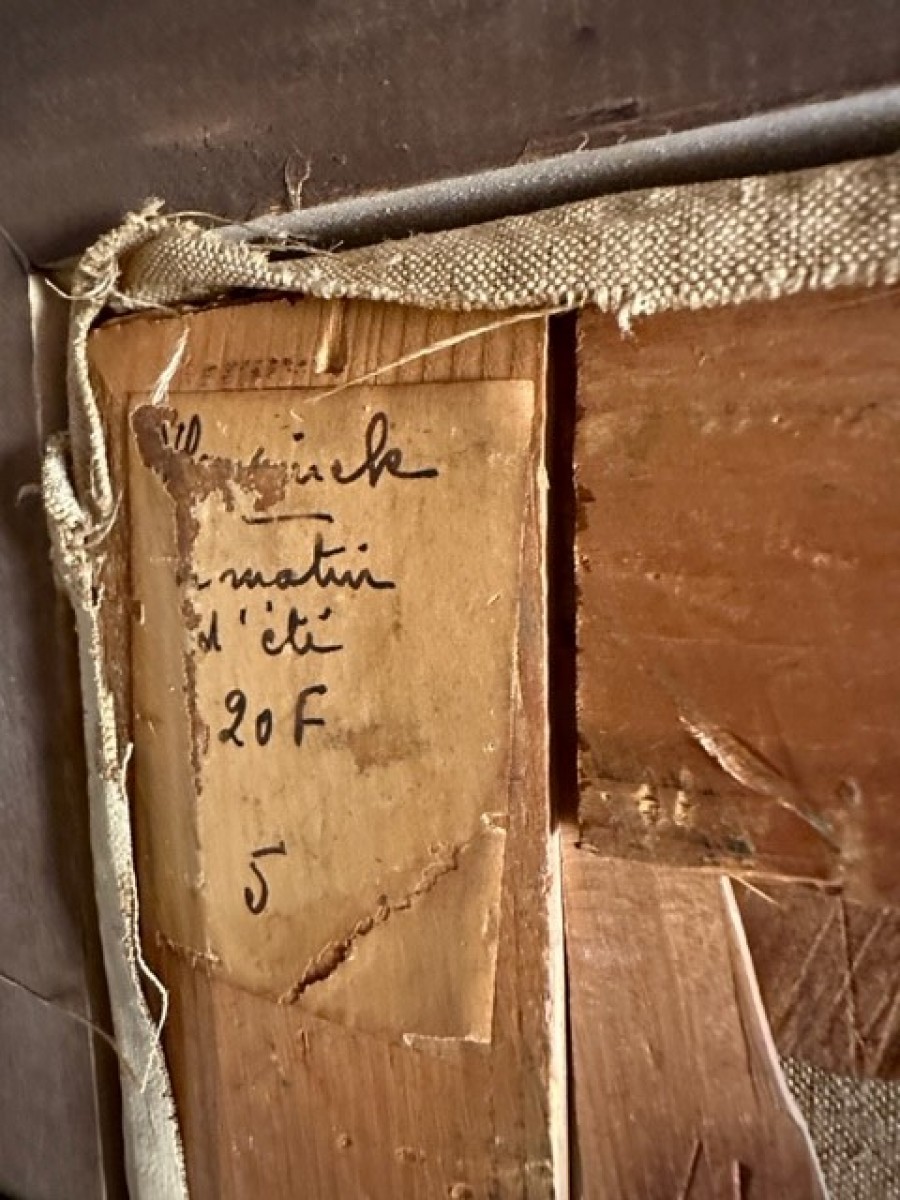 Vlaminck
matin
d'été
20F
5